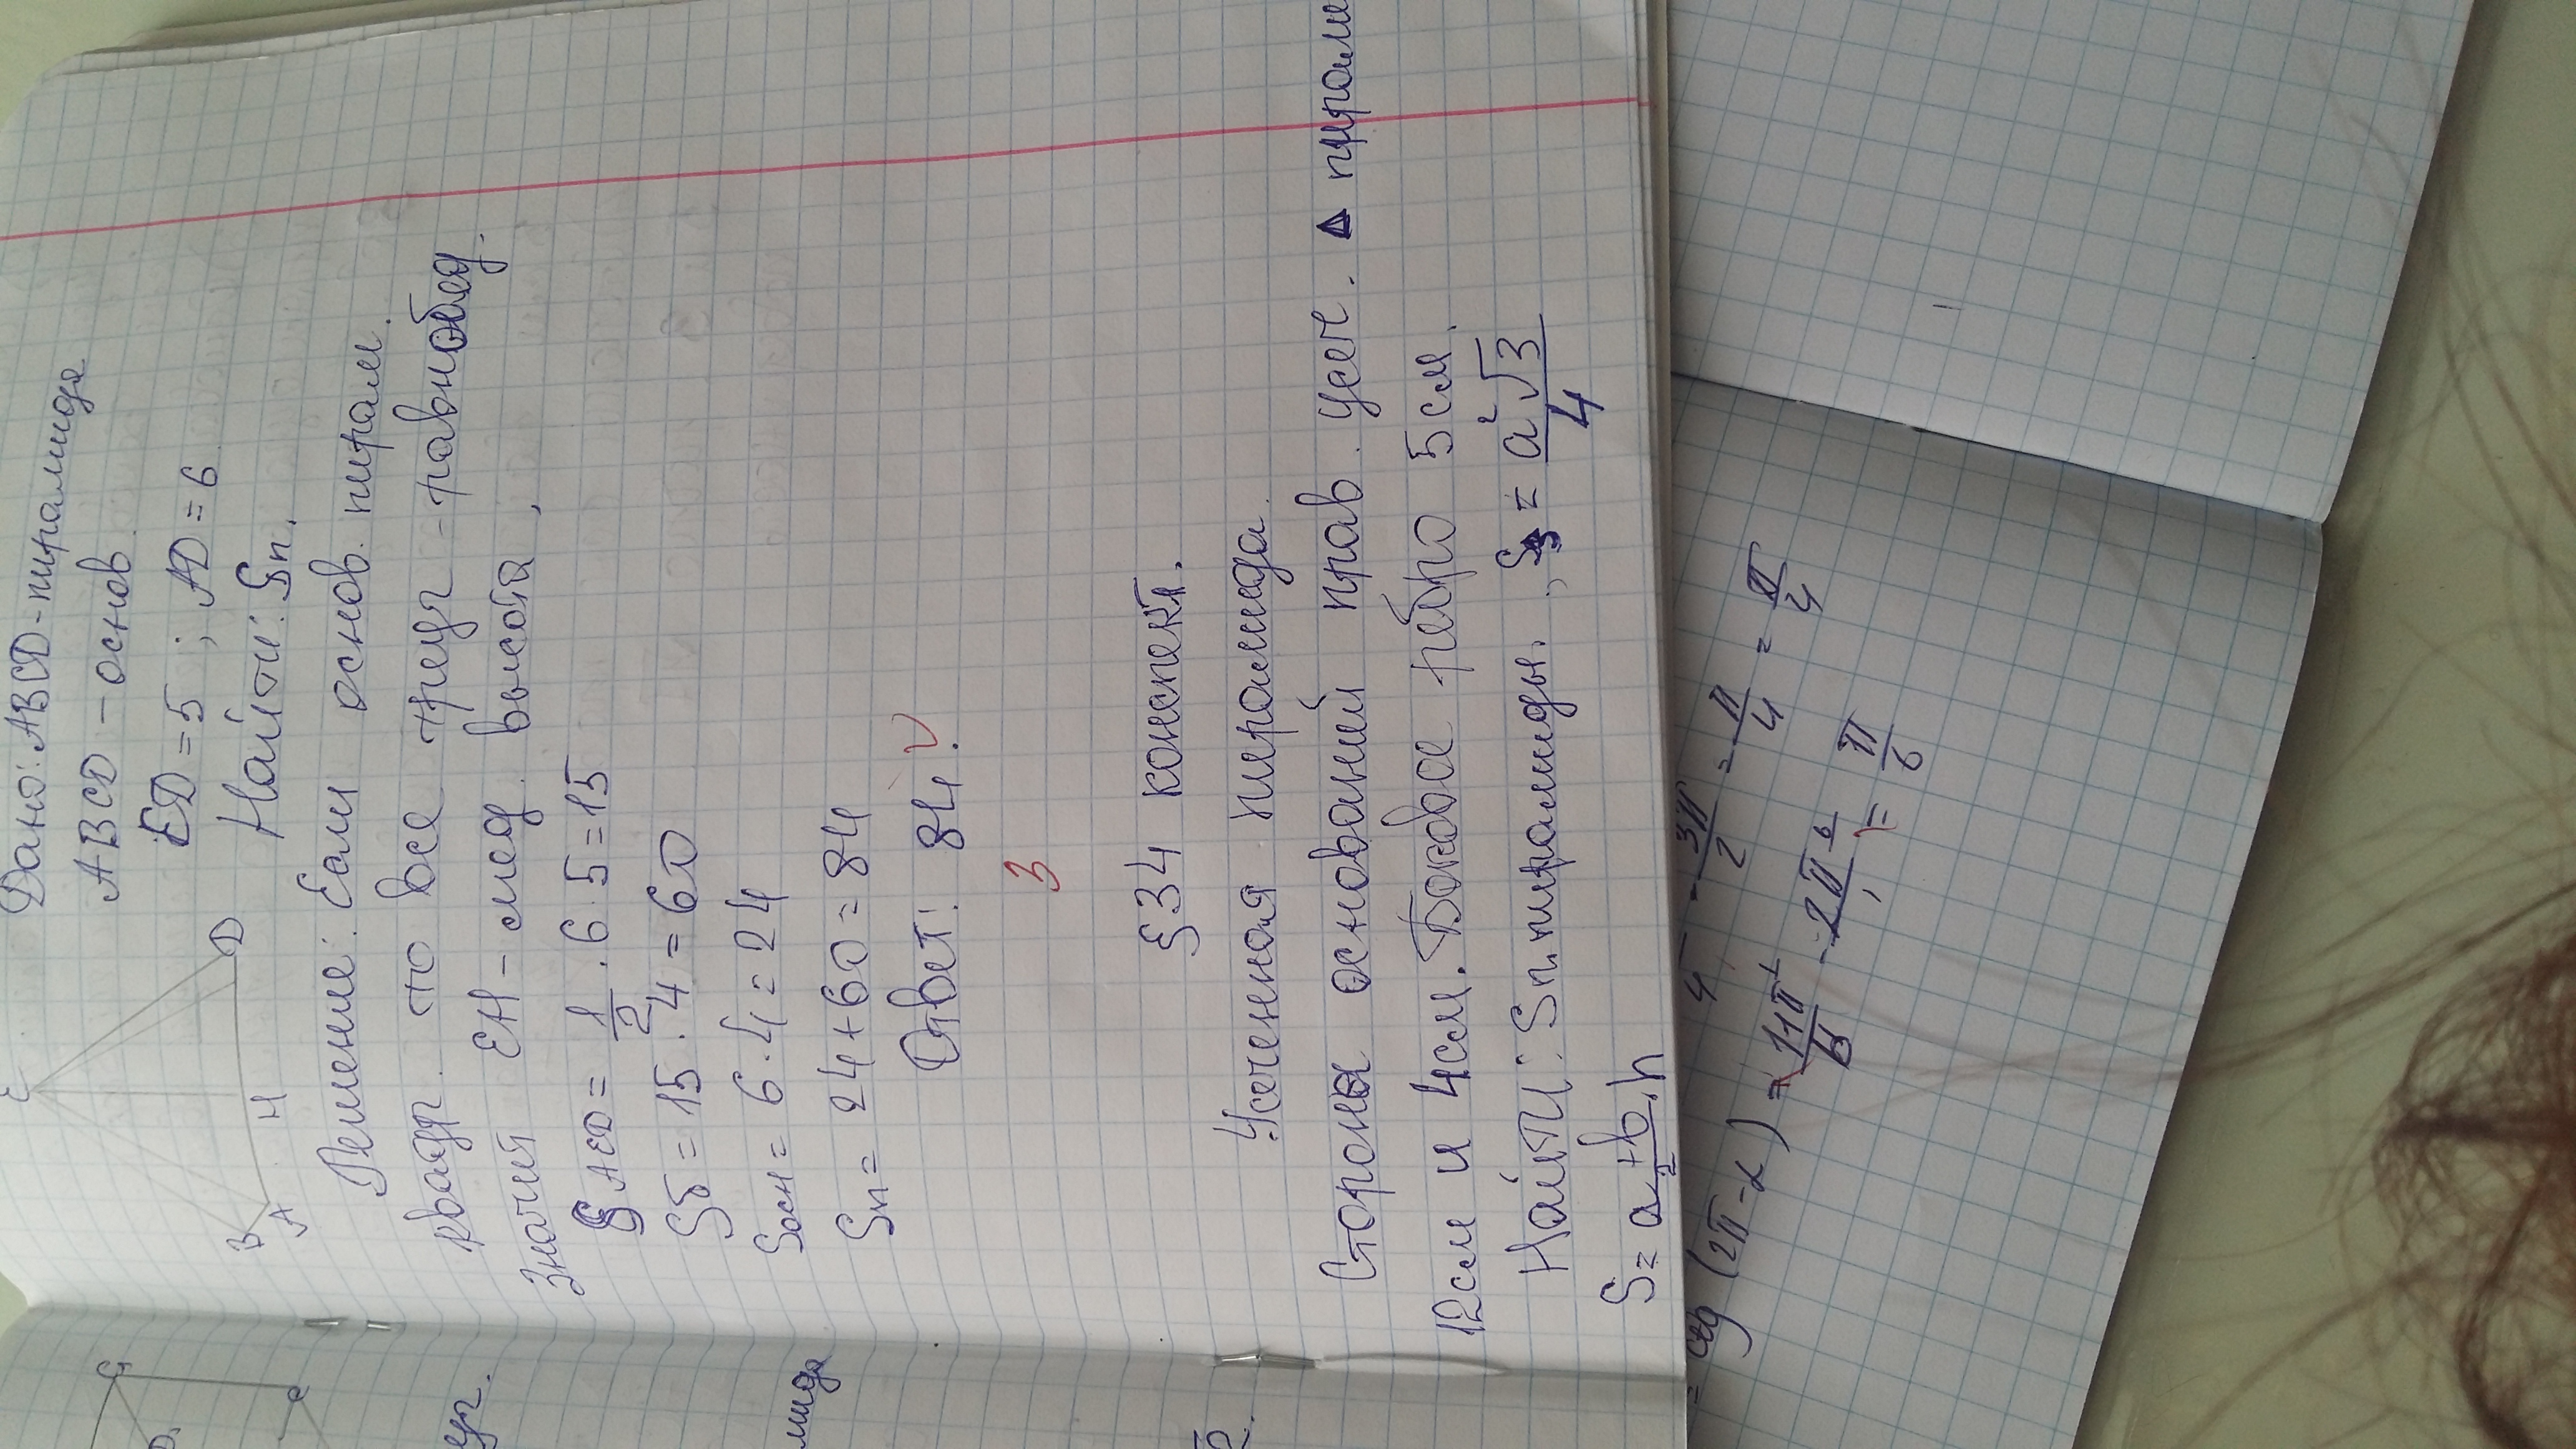 E
B
A
H
D
Дано: ABCD - пирамида
ABCD - основ.
ED = 5 ; AD = 6
Найти: Sп.
Решение: Если основ. пирам.
квадр. то все треуг - равнобед.
Значит EH - мед. высота,
S AED = 1/2 · 6 · 5 = 15
Sб = 15 · 4 = 60
Sосн = 6 · 4 = 24
Sп = 24 + 60 = 84
Ответ: 84.
3
§34 конспект.
Усеченная пирамида.
Стороны оснований прав. усеч. Δ пирам
12см и 4см. Боковое ребро 5см.
Найти: Sп. пирамиды. , S = a²√3/4
S = a+b/2 · h
уг.
мида
- 3π/2 = π/4 = π/4
ctg (2π - α) = 11π/6 - 2π/1 = π/6